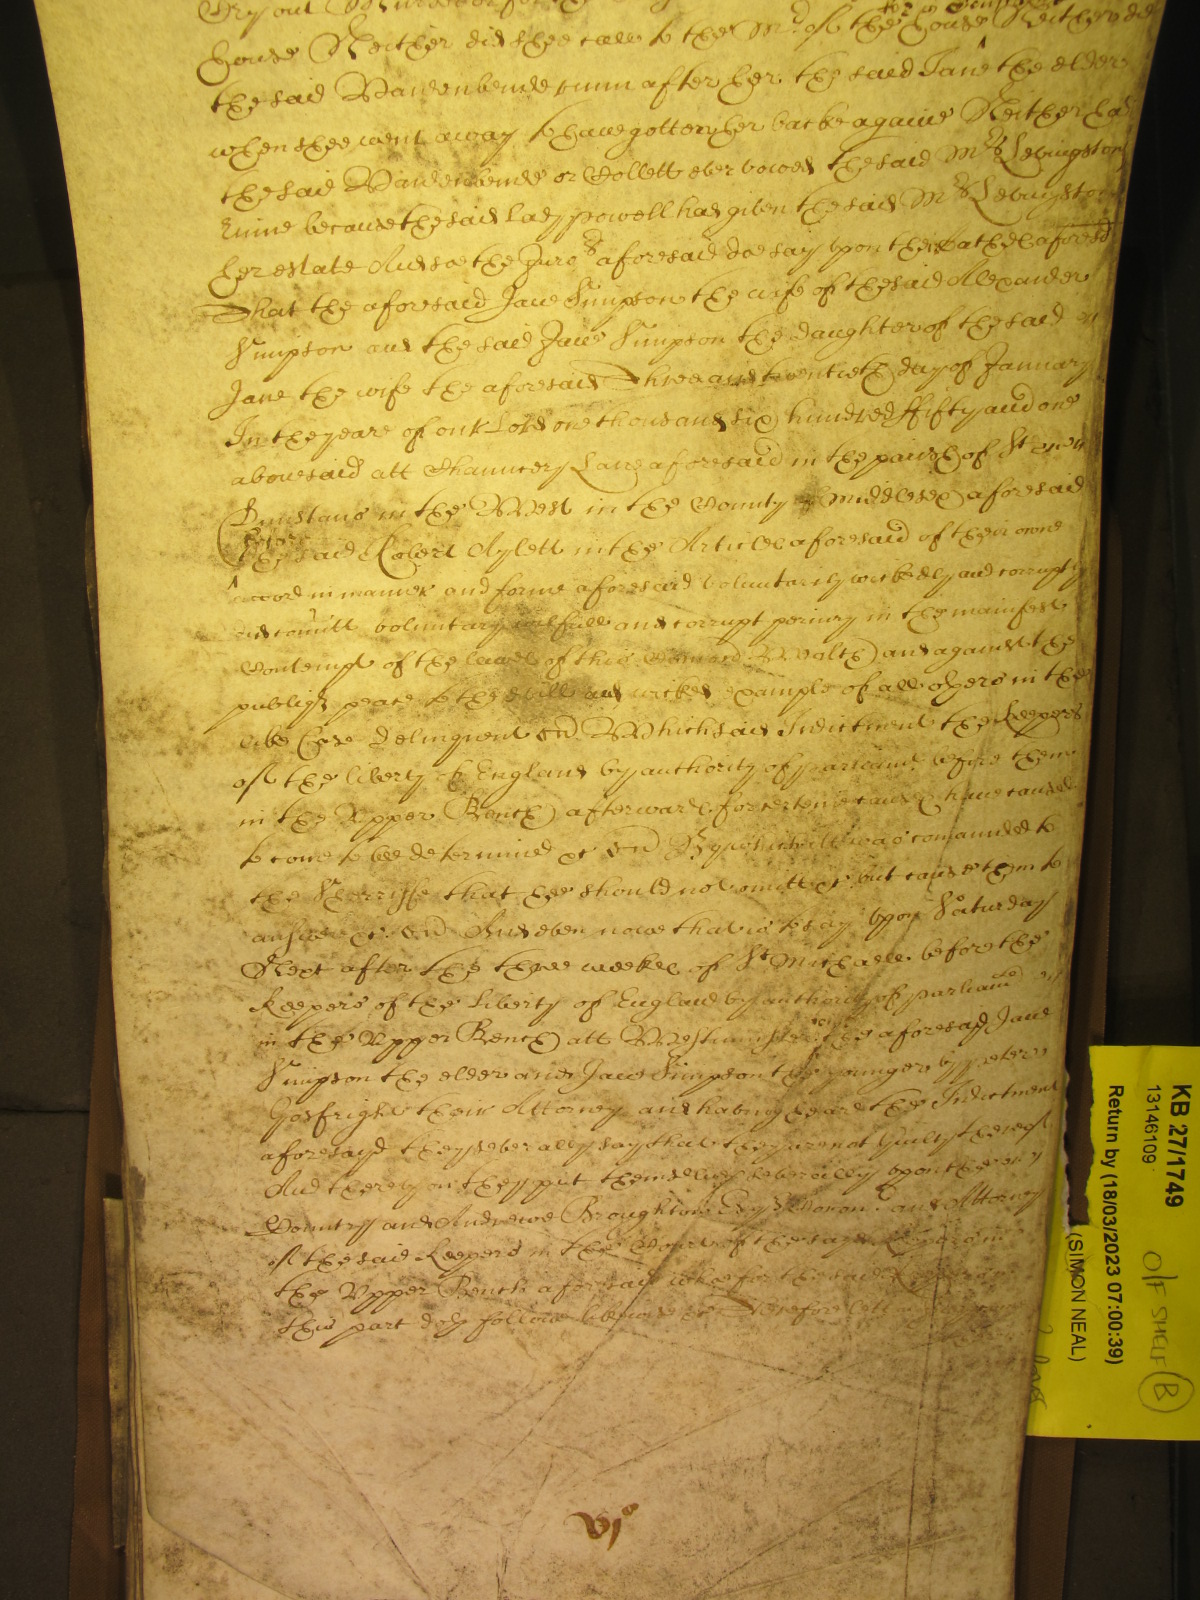 Cry out Murder
house Neither did shee call to the Mr. of the house Neither did
the said Vandenbende runn after her the said Jane the elder
when shee went away to have gotten her backe againe Neither had
the said Vandenbende or Collett ever vowed the said Mrs Levingston
ruine because the said Lady Powell had given the said Mrs Levingston
her estate And soe the Juros aforesaid doe say upon their oathes aforesd
That the aforesaid Jane Simpson the wife of the said Alexander
Simpson and the said Jane Simpson the daughter of the said
Jane the wife the aforesaid Three and twentieth day of January
In the yeare of our Lord one thousand six hundred ffifty and one
abovesaid att Chauncery Lane aforesaid in the parish of St
Dunstans in the West in the County of Middlesex aforesaid
before
the said Robert Aylett in the Articles aforesaid of their owne
accord in manner and forme aforesaid voluntarily wickedly and corruptly
did comitt voluntary wilfull and corrupt periury in the manifest
Contempt of the lawes of this Comond Wealth and against the
publiq peace to the evill and wicked example of all others in the
like Case delinquent &c Which said Indictment the Keepers
of the liberty of England by authority of parliamt before them
in the Upper Bench afterward for certen causes have caused
to come to bee determined &c And By which itt was comaunded to
the Sherriffe that hee should not omitt &c but cause them to
answere &c And And even nowe that is to say upon Saturday
Next after the three weekes of St Michaell before the
Keepers of the Liberty of England by authority of parliamt
in the Upper Bench att Westminster come the aforesayd Jane
Simpson the elder and Jane Simpson the younger by Peter
Gosfright their Attorney and having heard the Indictment
aforesayd they severally say that they are not Guilty thereof
And thereupon they put themselves severally upon the
Country and Andrewe Broughton Esqr Coron. and Attorney
of the said Keepers in the Court of the said Keepers in
the Upper Bench aforesaid who for the said Keepers in
this part doth followe likewise &c Therefore lett
KB 27/1749
13146109
Return by (18/03/2023 07:00:39)
(SIMON NEAL)
O/F SHELF B